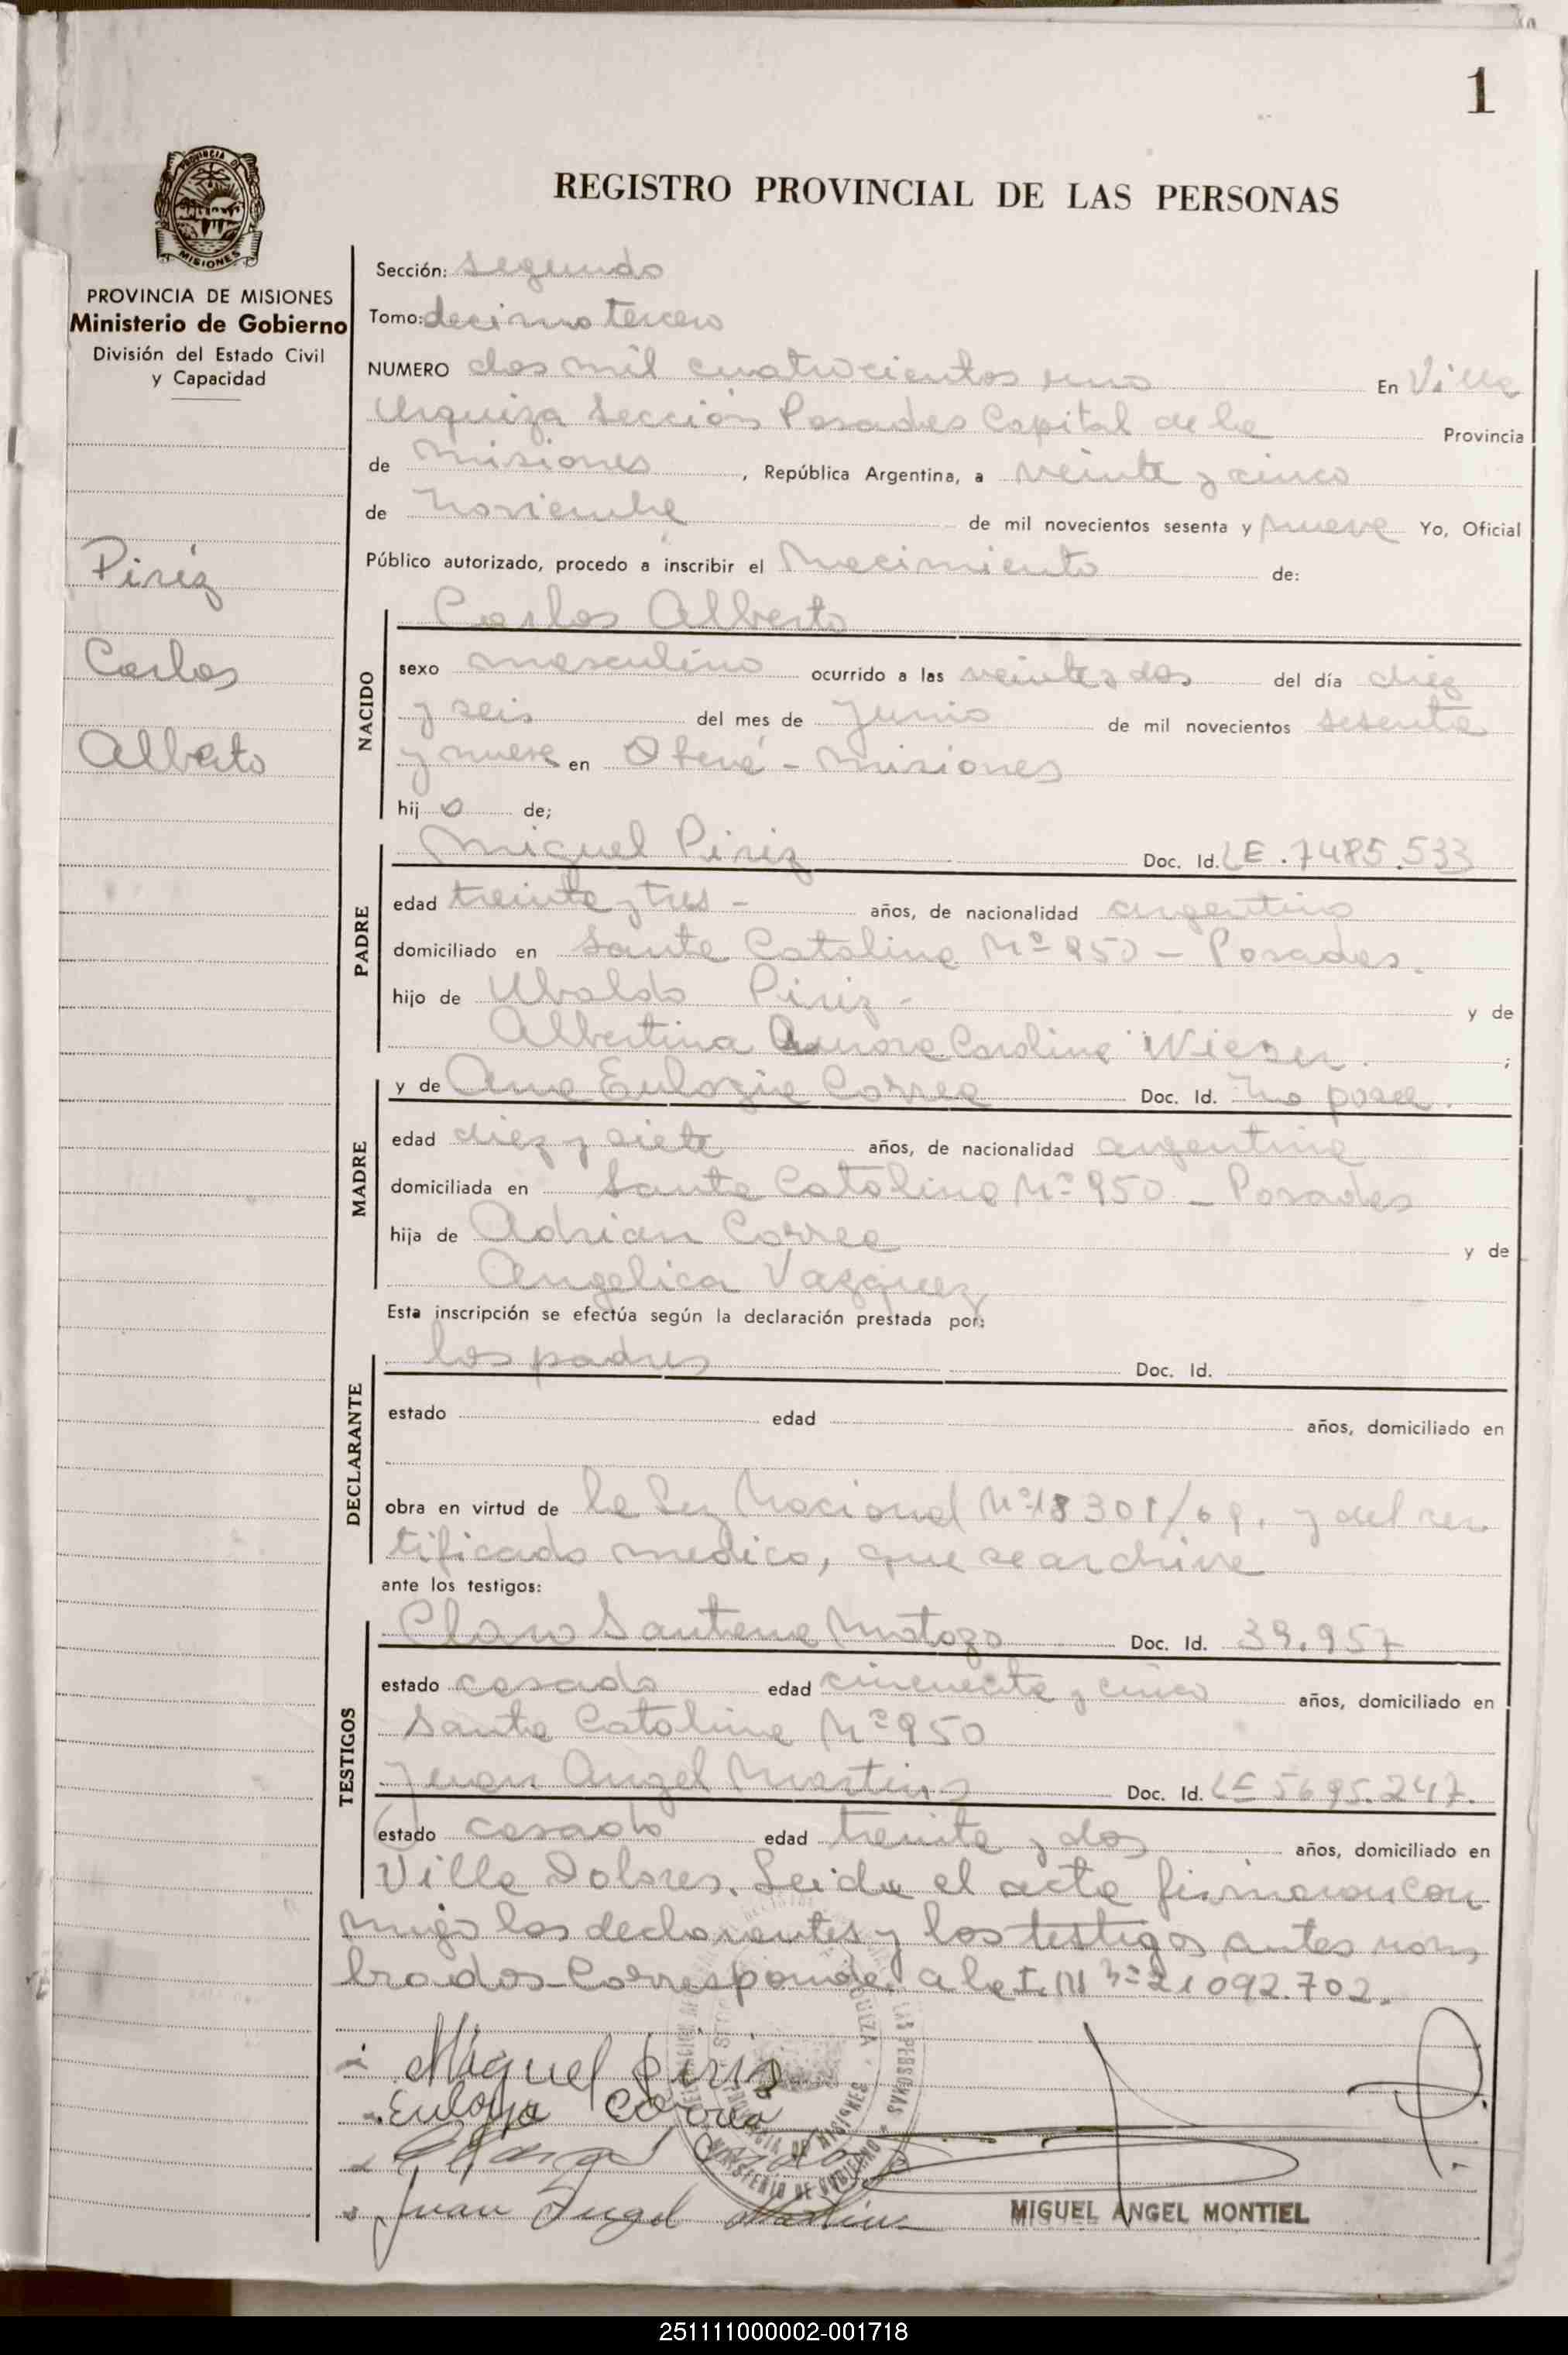 1
REGISTRO PROVINCIAL DE LAS PERSONAS
PROVINCIA DE
MISIONES
PROVINCIA DE MISIONES
Ministerio de Gobierno
División del Estado Civil
y Capacidad
Piriz
Carlos
Alberto
Sección: segundo
Tomo: decimo tercero
NUMERO dos mil cuatrocientos uno En Villa
Urquiza Sección Posadas Capital de la Provincia
de Misiones, República Argentina, a veinte y cinco
de Noviembre de mil novecientos sesenta y nueve Yo, Oficial
Público autorizado, procedo a inscribir el Nacimiento de:
Carlos Alberto
NACIDO
sexo masculino ocurrido a las veintes dos del día diez
y seis del mes de Junio de mil novecientos sesenta
y nueve en Oberá - Misiones
hij o de;
PADRE
Miguel Piriz Doc. Id. LE. 7485.533
edad treinta y tres - años, de nacionalidad argentino
domiciliado en Santa Catalina Nº 950 - Posadas.
hijo de Ubaldo Piriz - y de
Albertina Aurora Carolina Wieser.;
MADRE
y de Ana Eulogia Correa Doc. Id. No posee.
edad diez y siete años, de nacionalidad argentina
domiciliada en Santa Catalina Nº 950 - Posadas
hija de Adrian Correa y de
Angelica Vazquez
Esta inscripción se efectúa según la declaración prestada por:
DECLARANTE
los padres Doc. Id.
estado edad años, domiciliado en
obra en virtud de la Ley Nacional Nº 18301/69. y del cer
tificado medico, que se archiva
ante los testigos:
TESTIGOS
Claro Santana Doc. Id. 39.957
estado casado edad cincuenta y cinco años, domiciliado en
Santa Catalina Nº 950
Juan Angel Martins Doc. Id. LE 5695.247.
estado casado edad treinta y dos años, domiciliado en
Villa Dolores. Leida el acta firmaron con
migo los declarantes y los testigos antes nom
brados. Corresponde a la I. Nº 21092.702.
Miguel Piriz
Eulogia Correa
Juan Angel Martins
LAS PERSONAS
PROVINCIA DE MISIONES
MINISTERIO DE GOBIERNO
MIGUEL ANGEL MONTIEL
251111000002-001718